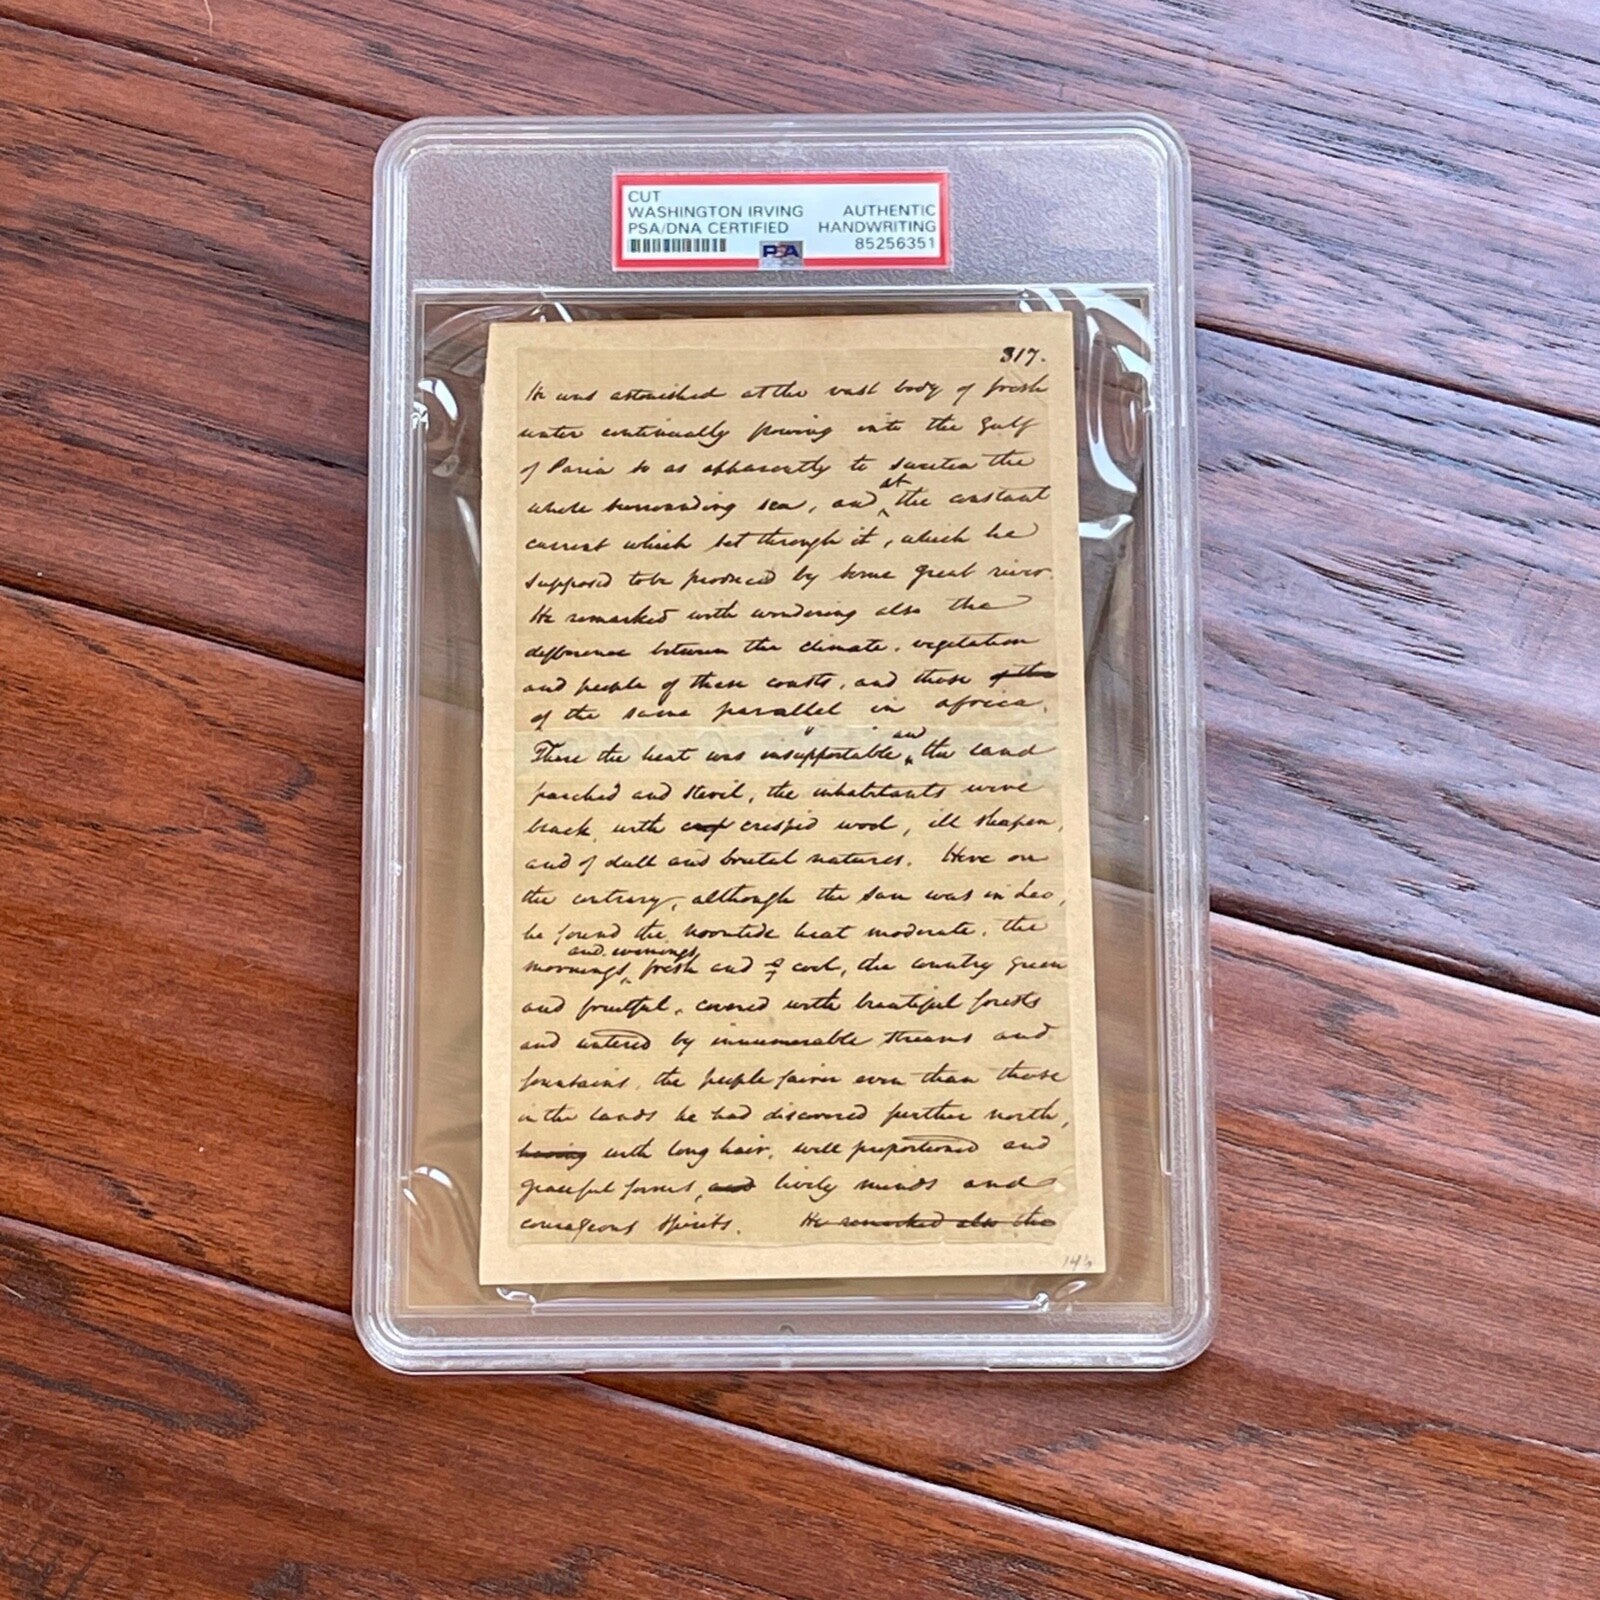 CUT
WASHINGTON IRVING AUTHENTIC
PSA/DNA CERTIFIED HANDWRITING
PSA 85256351
317.
He was astonished at the vast body of fresh
water continually flowing into the Gulf
of Paria so as apparently to sweeten the
whole surrounding sea, and at the constant
current which set through it, which he
supposed to be produced by some great river.
He remarked with wondering also the
difference between the climate, vegetation
and people of these coasts, and those of the
of the same parallel in Africa.
There the heat was insupportable, and the land
parched and steril, the inhabitants were
black, with crisped wool, ill shapen,
and of dull and brutal natures. Here on
the contrary, although the sun was in Leo,
he found the noontide heat moderate, the
mornings and evenings fresh and cool, the country green
and fruitful, covered with beautiful forests
and watered by innumerable streams and
fountains, the people fairer even than those
in the lands he had discovered further north,
having with long hair, well proportioned and
graceful forms, and lively minds and
courageous spirits. He remarked also the